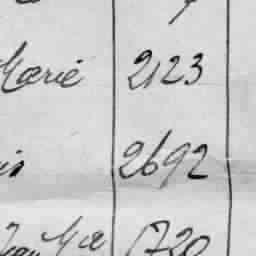 Marie 2123
is 2692
1720